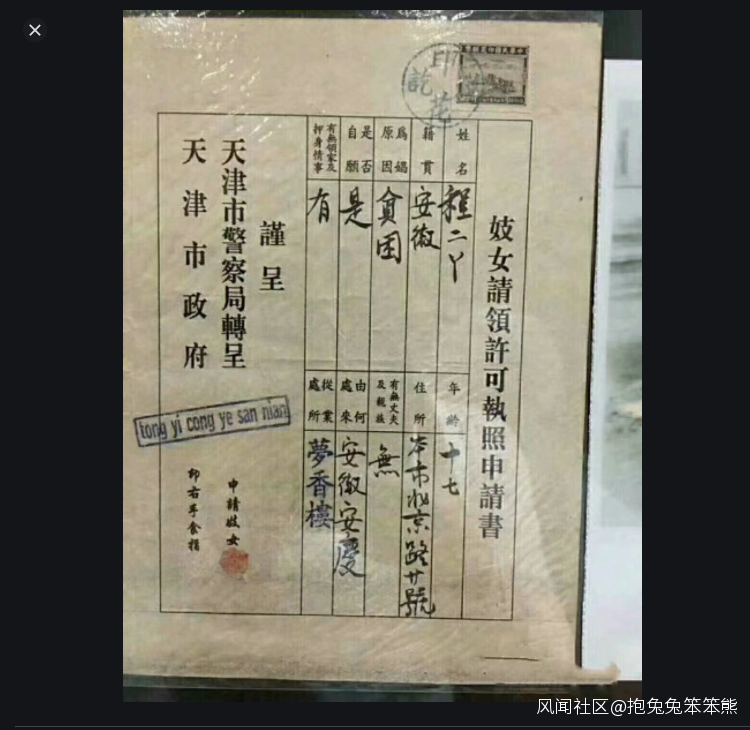 印花
訖
妓女請領許可執照申請書
姓名
程二丫
年齡
十七
籍貫
安徽
住所
本市北京路廿號
為娼原因
貧困
有無丈夫及親族
無
是否自願
是
由何處來
安徽安慶
有無領家及押身情事
有
從業處所
夢香樓
謹呈
天津市警察局轉呈
天津市政府
tong yi cong ye san nian
申請妓女
印右手食指
风闻社区@抱兔兔笨笨熊